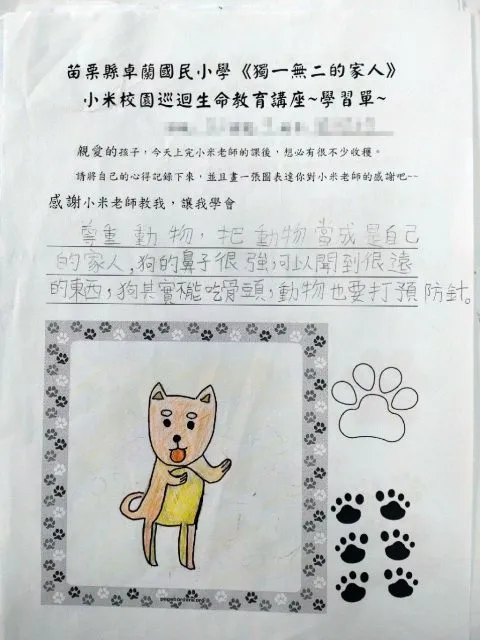 苗栗縣卓蘭國民小學《獨一無二的家人》
小米校園巡迴生命教育講座~學習單~
親愛的孩子，今天上完小米老師的課後，想必有很不少收穫。
請將自己的心得記錄下來，並且畫一張圖表達你對小米老師的感謝吧--
感謝小米老師教我，讓我學會
尊重動物，把動物當成是自己
的家人，狗的鼻子很強，可以聞到很遠
的東西，狗其實不能吃骨頭，動物也要打預防針。